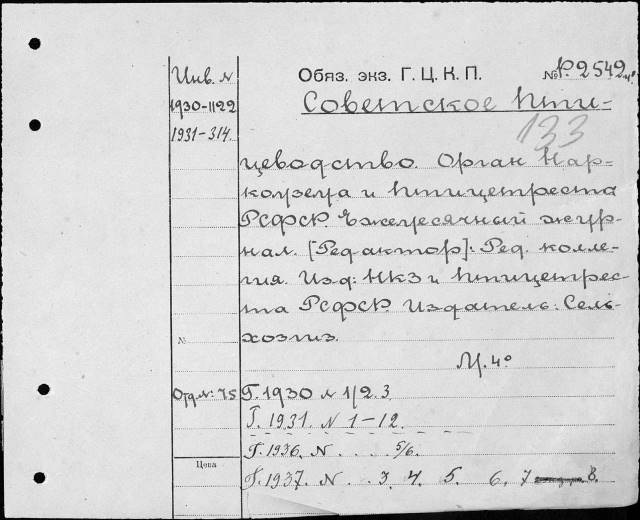 Инв. N
1930-1122
1931-314.
Обяз. экз. Г. Ц. К. П.
№ Р. 2542
Советское Пти-
133
цеводство. Орган Нар-
комзема и Птицетреста
РСФСР. Ежемесячный жур-
нал. [Редактор]: Ред. колле-
гия. Изд: НКЗ и Птицетрес-
та РСФСР. Издатель: Сель-
хозгиз.
№
М. 4°
Отд. №: 75
Г. 1930 N 1/2. 3
Г. 1931. N 1-12.
Г. 1936. N . . . 5/6.
Цена
Г. 1937. N . . 3. 4. 5. 6. 7 8.